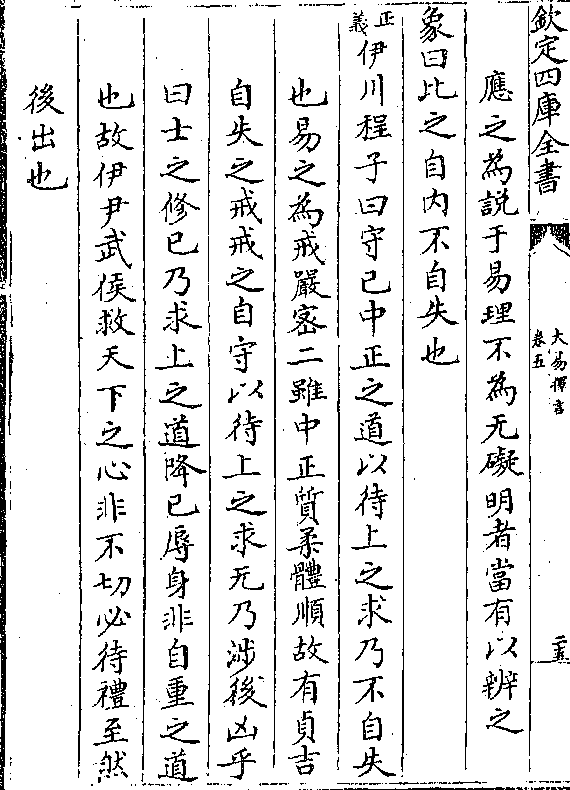 欽定四庫全書
大易擇言
卷五
二五
應之為説于易理不為无礙明者當有以辨之
象曰比之自内不自失也
正義
伊川程子曰守己中正之道以待上之求乃不自失
也易之為戒嚴宻二雖中正質柔體順故有貞吉
自失之戒戒之自守以待上之求无乃涉後凶乎
曰士之修已乃求上之道降已辱身非自重之道
也故伊尹武侯救天下之心非不切必待禮至然
後出也